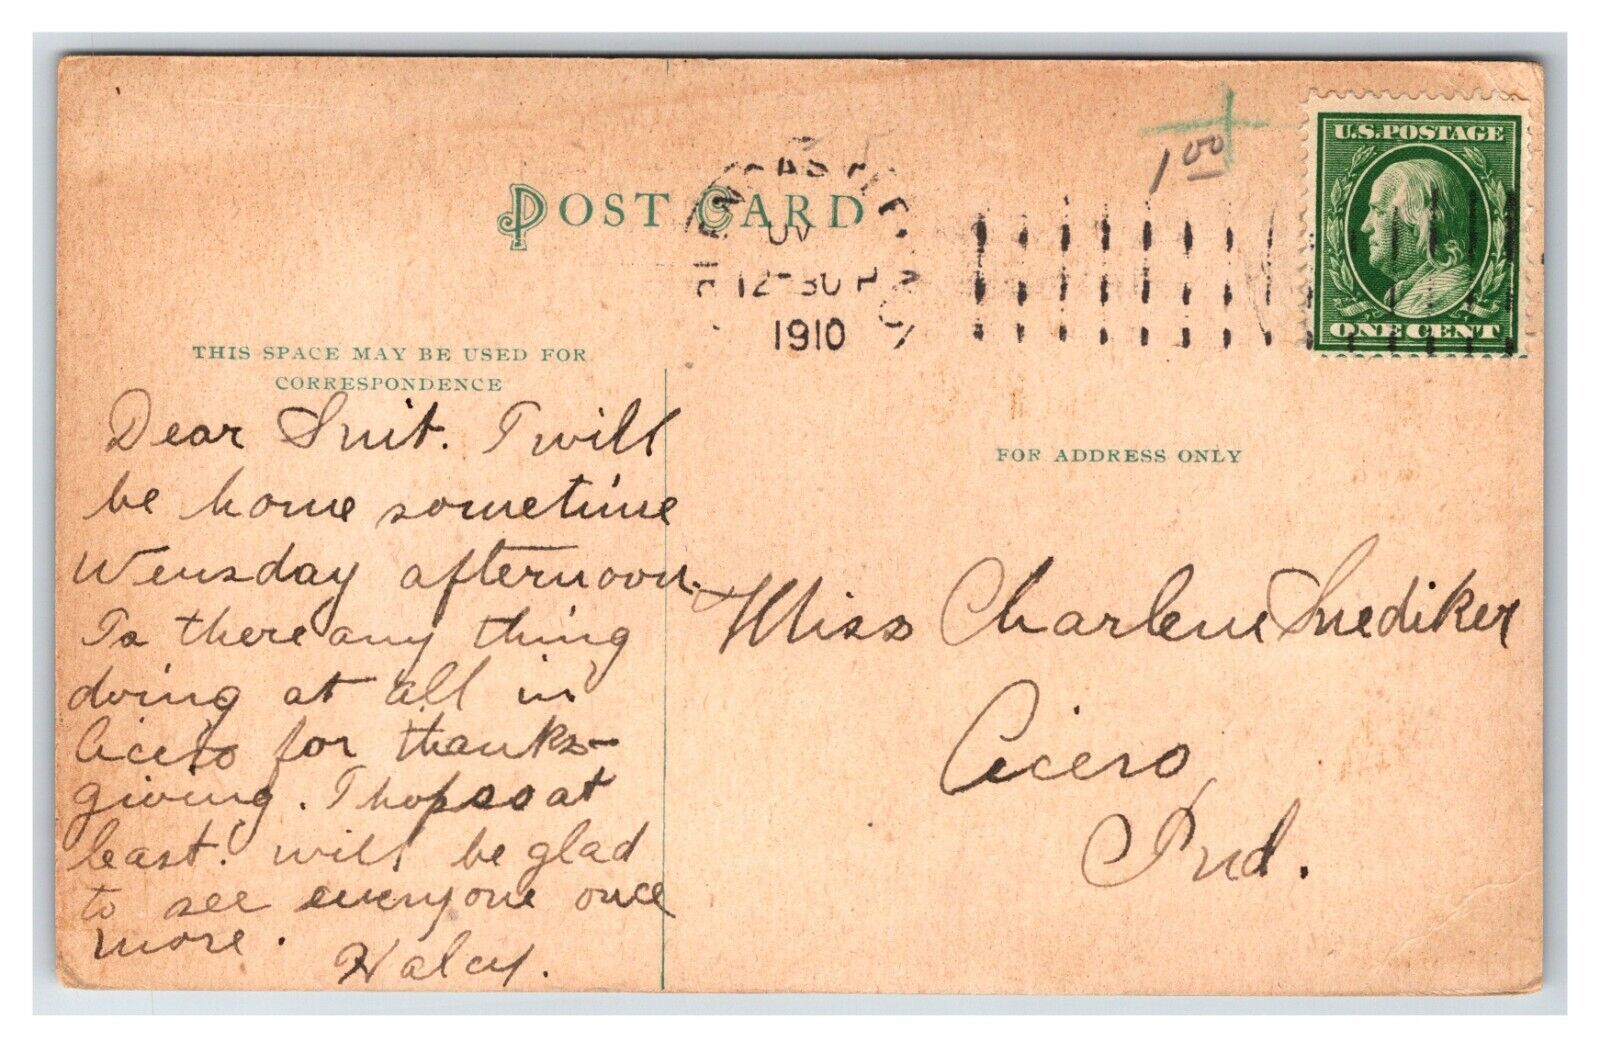 1.00
U.S. POSTAGE
ONE CENT
POST CARD
12-30 P
1910
THIS SPACE MAY BE USED FOR
CORRESPONDENCE
FOR ADDRESS ONLY
Dear Snit. I will
be home sometime
Wensday afternoon.
Is there any thing
doing at all in
Cicero for thanks-
giving. I hope so at
least. will be glad
to see everyone once
more.
Halcy.
Miss Charlene Snediker
Cicero,
Ind.